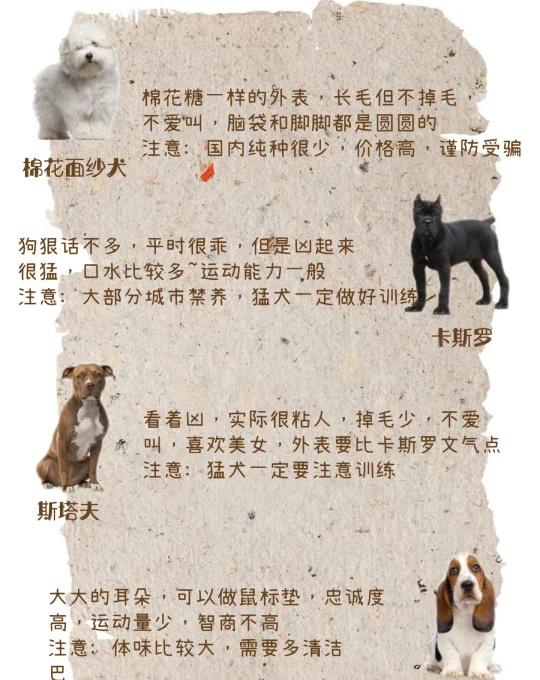 棉花糖一样的外表，长毛但不掉毛，
不爱叫，脑袋和脚脚都是圆圆的
注意：国内纯种很少，价格高，谨防受骗
棉花面纱犬
狗狠话不多，平时很乖，但是凶起来
很猛，口水比较多~运动能力一般
注意：大部分城市禁养，猛犬一定做好训练
卡斯罗
看着凶，实际很粘人，掉毛少，不爱
叫，喜欢美女，外表要比卡斯罗文气点
注意：猛犬一定要注意训练
斯塔夫
大大的耳朵，可以做鼠标垫，忠诚度
高，运动量少，智商不高
注意：体味比较大，需要多清洁
巴